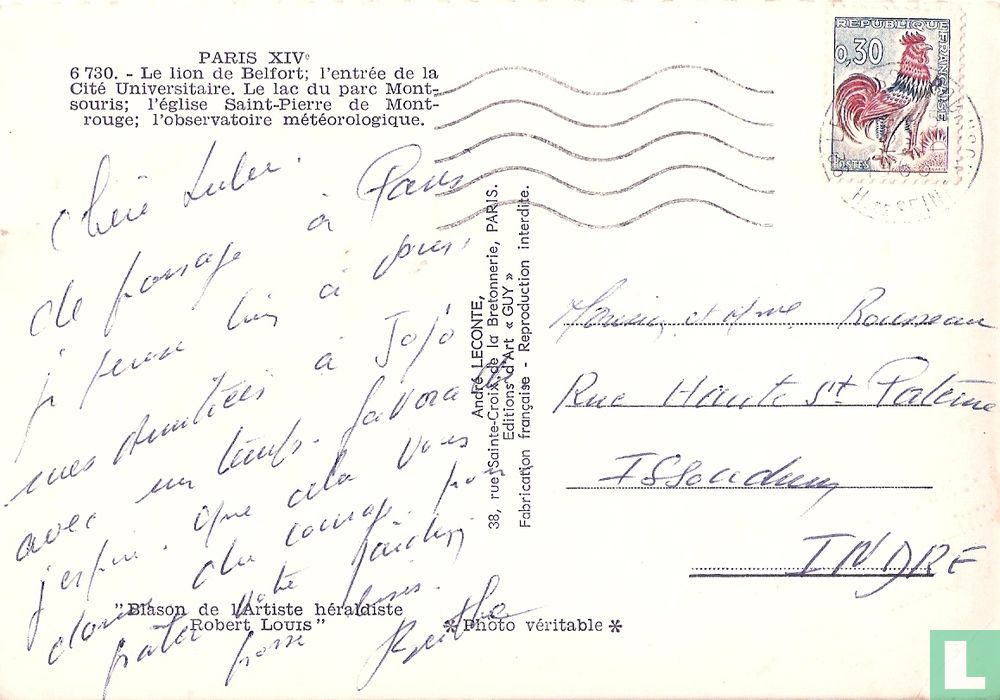 PARIS XIVe
6 730. - Le lion de Belfort; l'entrée de la
Cité Universitaire. Le lac du parc Mont-
souris; l'église Saint-Pierre de Mont-
rouge; l'observatoire météorologique.
REPUBLIQUE FRANÇAISE
0,30
POSTES
Chère Lulu.
de passage à Paris
je pense bien à vous,
mes amitiés à Jojo
avec un temps favorable
j'espère que cela vous
donne du courage pour
votre jardin
grosse bises.
André LECONTE,
38, rue Sainte-Croix-de la Bretonnerie, PARIS.
Editions d'Art « GUY »
Fabrication française - Reproduction interdite.
Monsieur et Mme Rousseau
Rue Haute St Paterne
ISSoudun
INDRE
"Blason de l'Artiste héraldiste
Robert LOUIS"
* Photo véritable *
L